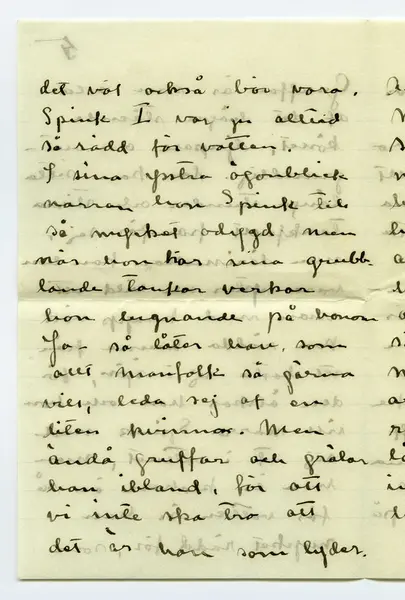 5
det väl också bör vara.
Spink I var ju alltid
så rädd för vatten.
I sina ystra ögonblick
narrar hon Spink till
så mycket odygd men
när hon har sina grubb-
lande tankar verkar
hon lugnande på honom
Ja - så låter han, som
allt manfolk så gärna
vill, leda sej af en
liten kvinna. Men
ändå gruffar och grälar
han ibland, för att
vi inte ska tro att
det är han som lyder.